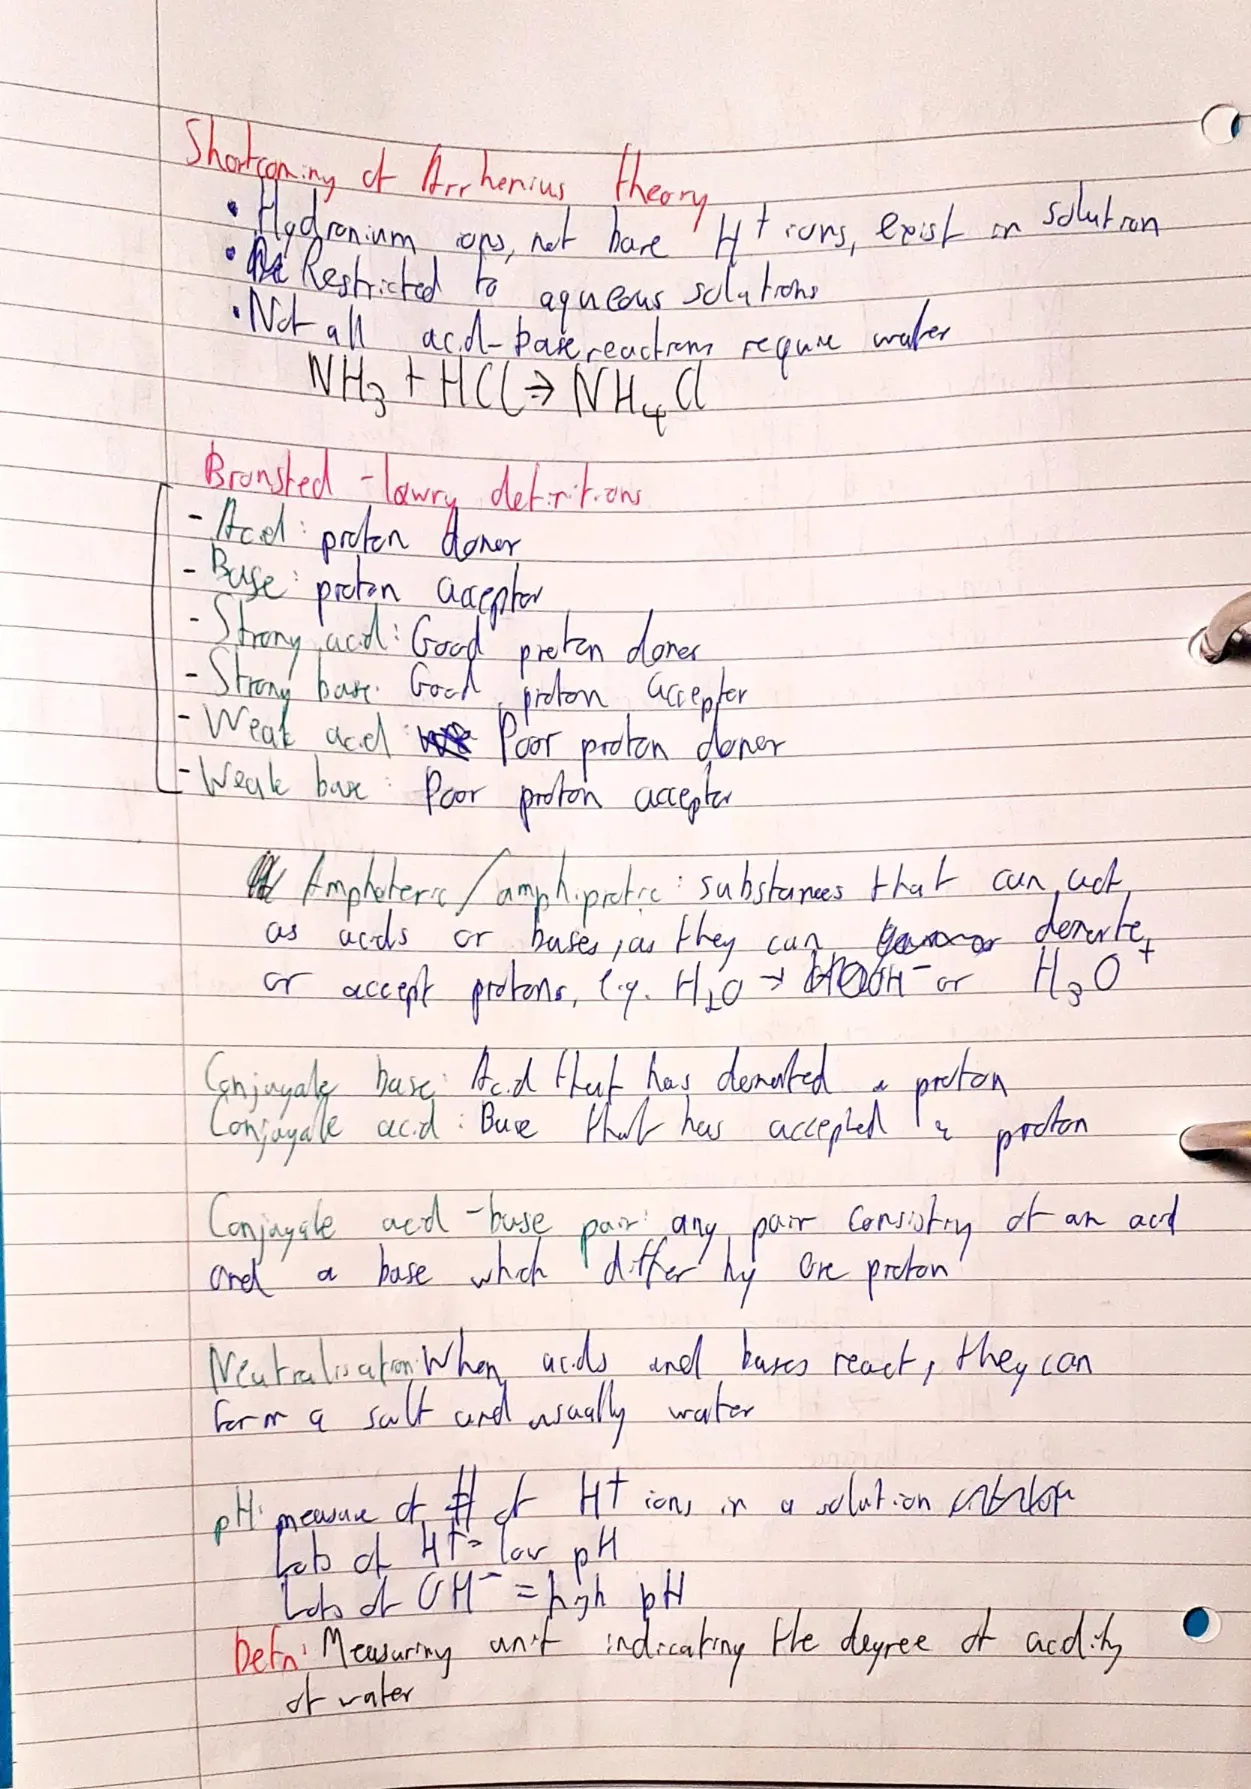 Shortcoming of Arrhenius theory
• Hydronium ions, not bare H⁺ ions, exist in solution
• Restricted to aqueous solutions
• Not all acid-base reactions require water
NH₃ + HCl → NH₄Cl
Bronsted-lowry definitions
- Acid: proton donor
- Base: proton acceptor
- Strong acid: Good proton donor
- Strong base: Good proton acceptor
- Weak acid: Poor proton donor
- Weak base: Poor proton acceptor
Amphoteric/amphiprotic: substances that can act
as acids or bases, as they can donate
or accept protons, e.g. H₂O → OH⁻ or H₃O⁺
Conjugate base: Acid that has donated a proton
Conjugate acid: Base that has accepted a proton
Conjugate acid-base pair: any pair consisting of an acid
and a base which differ by one proton
Neutralisation: When acids and bases react, they can
form a salt and usually water
pH: measure of # of H⁺ ions in a solution
Lots of H⁺ = low pH
Lots of OH⁻ = high pH
Defn: Measuring unit indicating the degree of acidity
of water